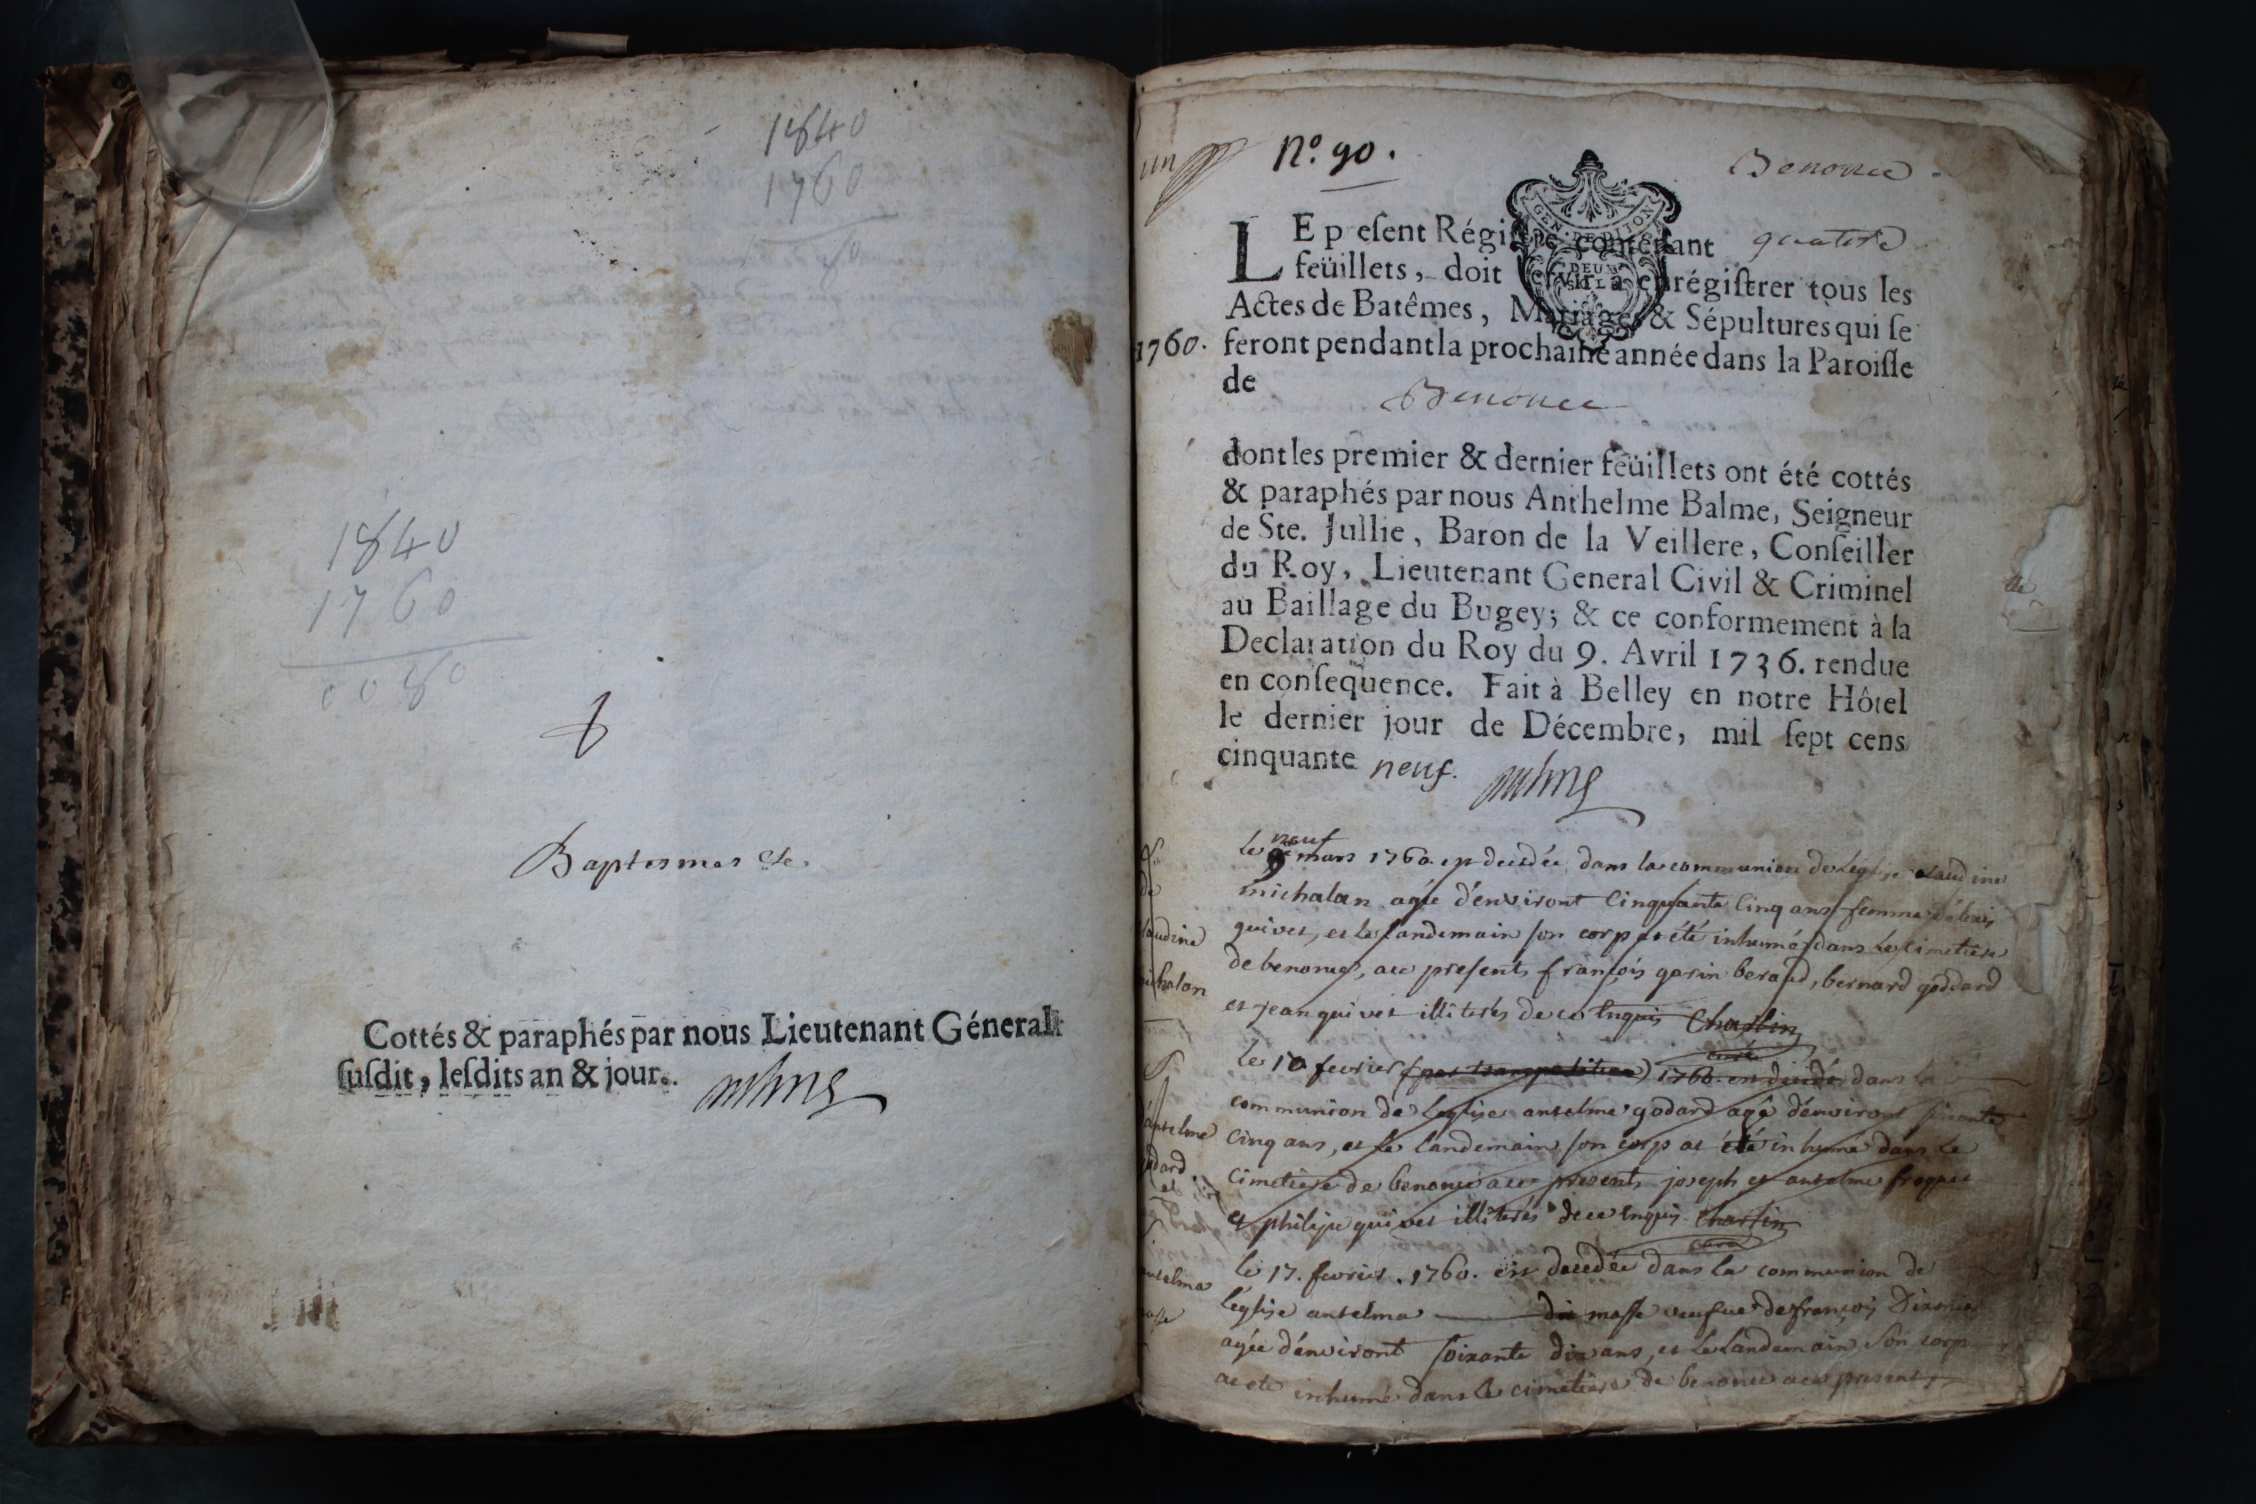 1840
1760
80
1840
1760
0080
Baptesmes &c.
Cottés & paraphés par nous Lieutenant Géneral
ſuſdit, leſdits an & jour.
un
N.º 90.
Benonce
GEN. DE DIJON
DEUX
SOLS
LE preſent Régiſtre contenant quatorze
feüillets, doit ſervir à enrégiſtrer tous les
Actes de Batêmes, Mariages & Sépultures qui ſe
1760. feront pendant la prochaine année dans la Paroiſſe
de Benonce
dont les premier & dernier feüillets ont été cottés
& paraphés par nous Anthelme Balme, Seigneur
de Ste. Jullie, Baron de la Veillere, Conſeiller
du Roy, Lieutenant General Civil & Criminel
au Baillage du Bugey; & ce conformement à la
Declaration du Roy du 9. Avril 1736. rendue
en conſequence. Fait à Belley en notre Hôtel
le dernier jour de Décembre, mil ſept cens
cinquante neuf.
neuf
le mars 1760. est decedée dans la communion de l'eglise claudine
michalan agée d'environt cinquante cinq ans femme
quivet, et le landemain son corp at été inhumé dans le cimetiere
de benonce, aux presents françois garin beraud, bernard goddard
et jean quivet illiterés de ce enquis Charlin
curé
le 10 fevrier (par transposition) 1760. est decedé dans la
communion de l'eglise antelme godard agé d'environt soixante
cinq ans, et le landemain son corp at été inhumé dans le
cimetiere de benonce aux presents joseph et antelme froquet
et philipe quivet illiterés de ce enquis Charlin
curé
le 17. fevrier. 1760. est decedée dans la communion de
l'eglise antelma masse veufve de françois
agée d'environt soixante dix ans, et le landemain son corp
at eté inhumé dans le cimetiere de benonce aux presents
de
claudine
michalon
antelme
godard
et
antelma
masse